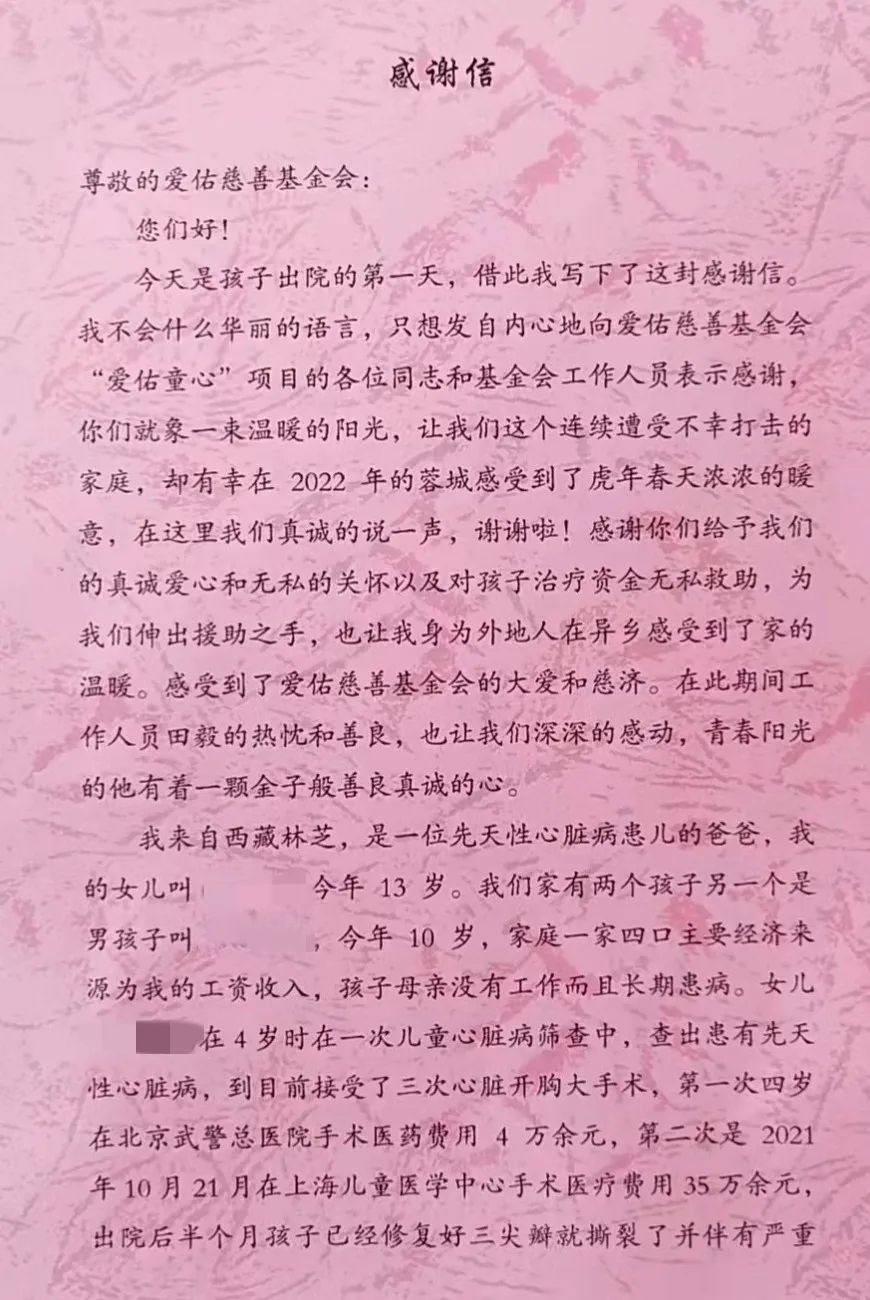 感谢信
尊敬的爱佑慈善基金会：
您们好！
今天是孩子出院的第一天，借此我写下了这封感谢信。
我不会什么华丽的语言，只想发自内心地向爱佑慈善基金会
“爱佑童心”项目的各位同志和基金会工作人员表示感谢，
你们就象一束温暖的阳光，让我们这个连续遭受不幸打击的
家庭，却有幸在 2022 年的蓉城感受到了虎年春天浓浓的暖
意，在这里我们真诚的说一声，谢谢啦！感谢你们给予我们
的真诚爱心和无私的关怀以及对孩子治疗资金无私救助，为
我们伸出援助之手，也让我身为外地人在异乡感受到了家的
温暖。感受到了爱佑慈善基金会的大爱和慈济。在此期间工
作人员田毅的热忱和善良，也让我们深深的感动，青春阳光
的他有着一颗金子般善良真诚的心。
我来自西藏林芝，是一位先天性心脏病患儿的爸爸，我
的女儿叫 今年 13 岁。我们家有两个孩子另一个是
男孩子叫 ，今年 10 岁，家庭一家四口主要经济来
源为我的工资收入，孩子母亲没有工作而且长期患病。女儿
在 4 岁时在一次儿童心脏病筛查中，查出患有先天
性心脏病，到目前接受了三次心脏开胸大手术，第一次四岁
在北京武警总医院手术医药费用 4 万余元，第二次是 2021
年 10 月 21 月在上海儿童医学中心手术医疗费用 35 万余元，
出院后半个月孩子已经修复好三尖瓣就撕裂了并伴有严重